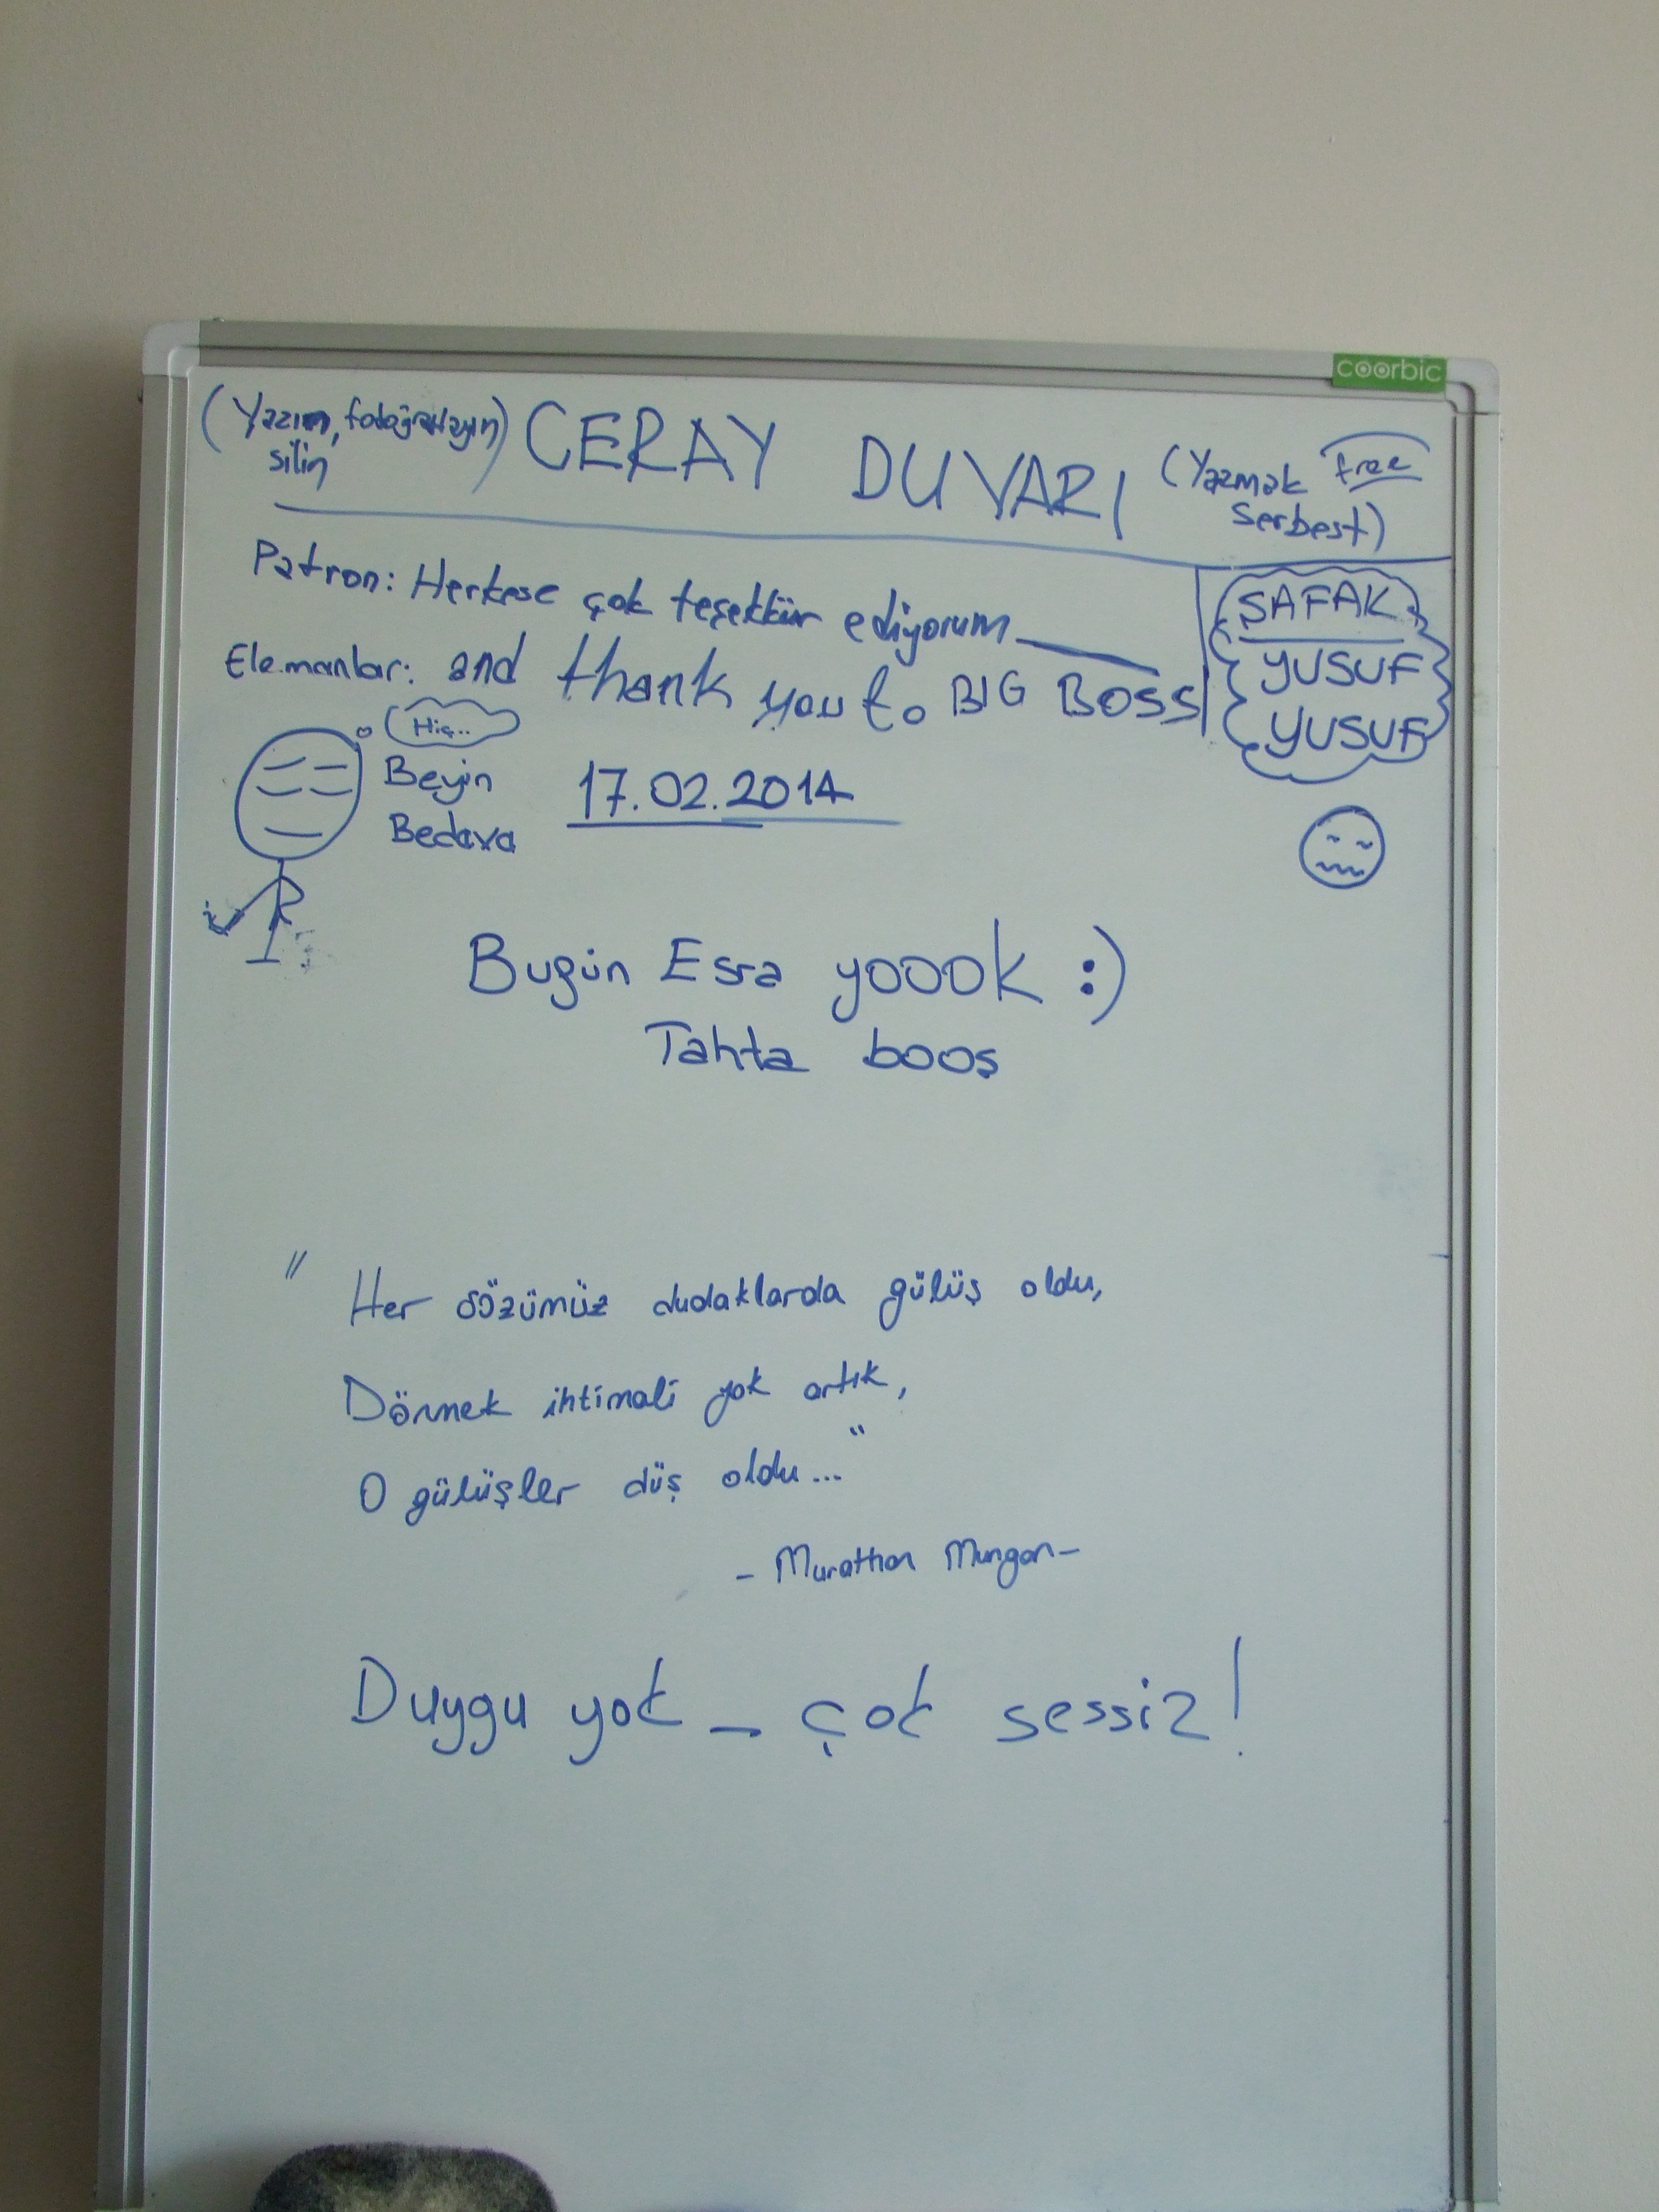 coorbic
(Yazın, fotoğraflayın)
silin
CERAY DUVARI
(Yazmak free
Serbest)
Patron: Herkese çok teşekkür ediyorum
Elemanlar: and thank you to BIG BOSS
ŞAFAK
YUSUF
YUSUF
Hiç..
Beyin
Bedava
17.02.2014
Bugün Esra yoook :)
Tahta booş
" Her sözümüz dudaklarda gülüş oldu,
Dönmek ihtimali yok artık,
O gülüşler düş oldu..."
- Murathan Mungan -
Duygu yok _ çok sessiz!